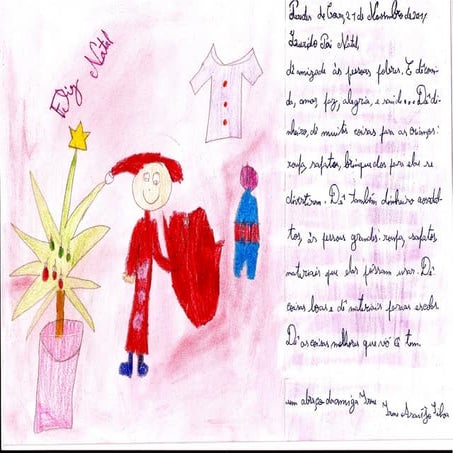 Feliz Natal
de Novembro de 2011
Querido Pai Natal,
dê amizade às pessoas pobres. E dê comi-
da, amor, paz, alegria, e saúde... Dê di-
nheiro, dê muitas coisas para as crianças:
roupa, sapatos, brinquedos para elas se
divertirem. Dê também dinheiro aos adul-
tos, às pessoas grandes: roupa, sapatos,
materiais que elas possam usar. Dê
coisas boas e dê materiais para a escola.
Dê as coisas melhores que vó tem.
um abraço da amiga Irene
Irene Araújo Silva